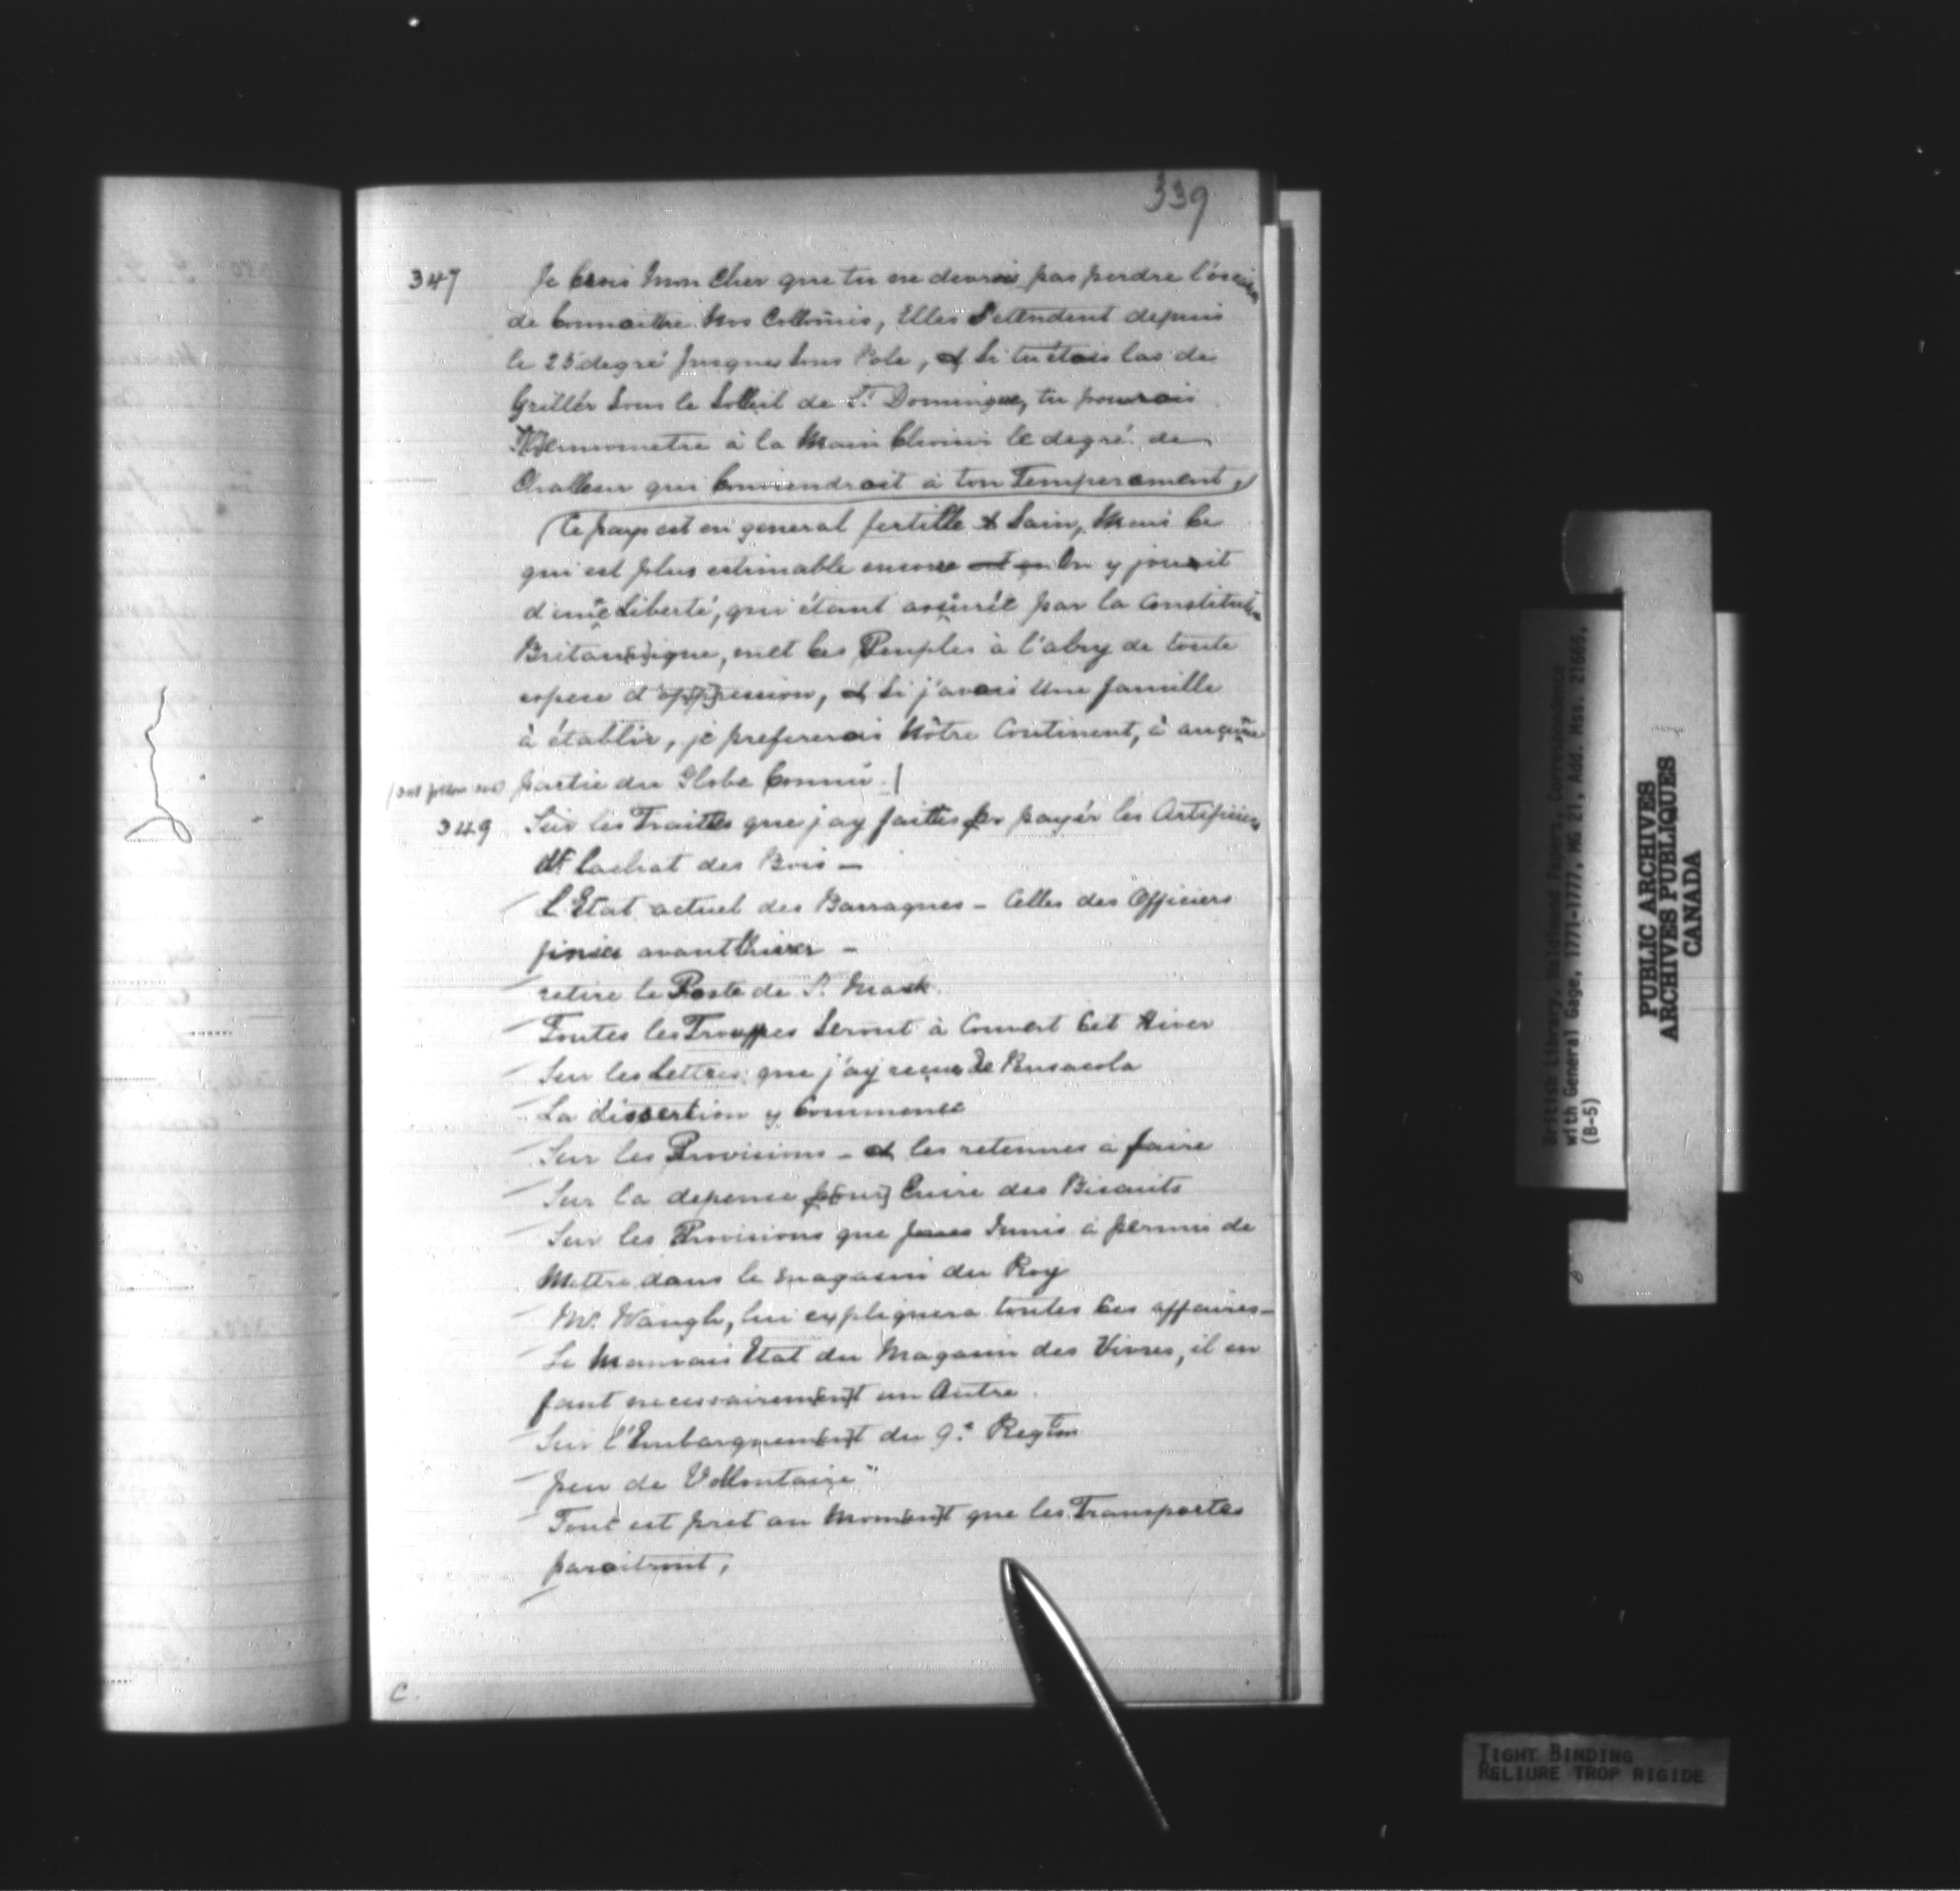 339
347 Je Crois Mon Cher que tu ne devrois pas perdre l'ocasion
de Connaittre Nos Collonies, Elles S'ettendent depuis
le 25 degré Jusques Sous Pole, et Si tu étois las de
Grillér Sous le Solleil de St Domingue, tu pourrois
Thermometre à la Main Choisir le degré de
Challeur qui Conviendroit à ton Temperament,
(Ce pays est en general fertille & Sain, Mais Ce
qui est plus estimable encore et qu On y jouit
d'une Liberté, qui étant assurée par la Constitution
Britannique, met Ces Peuples à l'abry de toute
espece d'oppression, et Si j'avois Une famille
à établir, je prefererois Nôtre Continent, à aucune
partie du Globe Connu.)
349 Sur les Traittes que j'ay faittes pr payér les Artificiers
et L'achat des Bois —
L'Etat actuel des Barraques — Celles des Officiers
finies avant L'hiver —
retiré le Poste de St Mark.
Toutes les Trouppes Seront à Couvert Cet Hiver
Sur les Lettres que j'ay reçues De Pensacola
La dissertion y Commence
Sur les Provisions — et les retenues à faire
Sur la depense p[our] Cuire des Biscuits
Sur les Provisions que Jones Innis à permis de
Mettre dans le Magasin du Roy
Mr. Waugh, lui expliquera toutes Ces affaires —
Le Mauvais Etat du Magasin des Vivres, il en
faut necessairem[en]t un Autre.
Sur l'Embarquem[en]t du 9e Regtm
peu de Vollontaire"
Tout est pret au Mom[en]t que les Transportes
paraitront,
C.
British Library, Haldimand Papers, Correspondence
with General Gage, 1771-1777, MG 21, Add. Mss. 21665,
(B-5)
PUBLIC ARCHIVES
ARCHIVES PUBLIQUES
CANADA
TIGHT BINDING
RELIURE TROP RIGIDE